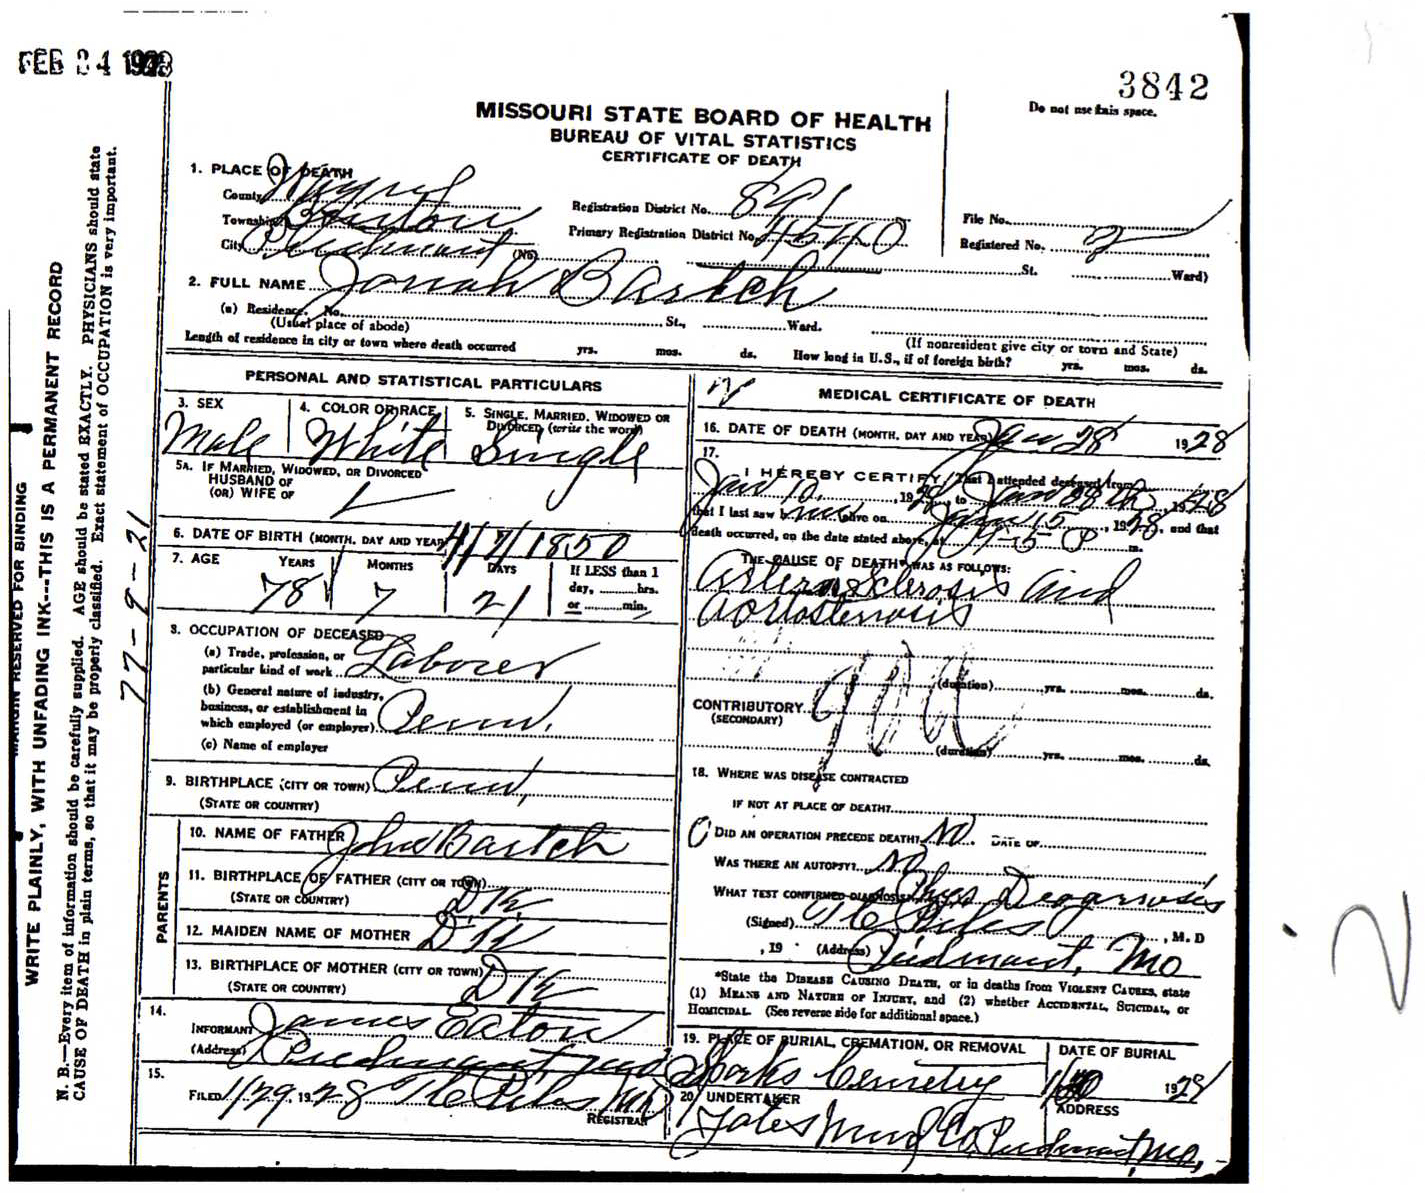 FEB 24 1928
3842
Do not use this space.
MISSOURI STATE BOARD OF HEALTH
BUREAU OF VITAL STATISTICS
CERTIFICATE OF DEATH
1. PLACE OF DEATH
County Wayne Registration District No. 891 File No.
Township Benton Primary Registration District No. 4540 Registered No. 2
City Piedmont (No. St. Ward)
2. FULL NAME Jonah Bartch
(a) Residence. No. St., Ward.
(Usual place of abode) (If nonresident give city or town and State)
Length of residence in city or town where death occurred yrs. mos. ds. How long in U.S., if of foreign birth? yrs. mos. ds.
PERSONAL AND STATISTICAL PARTICULARS
3. SEX 4. COLOR OR RACE 5. SINGLE, MARRIED, WIDOWED OR DIVORCED (write the word)
Male White Single
5A. IF MARRIED, WIDOWED, OR DIVORCED
HUSBAND OF
(OR) WIFE OF
6. DATE OF BIRTH (MONTH, DAY AND YEAR) 4/7/1850
7. AGE YEARS MONTHS DAYS If LESS than 1
day, hrs.
or min.
78 7 21
8. OCCUPATION OF DECEASED
(a) Trade, profession, or
particular kind of work Laborer
(b) General nature of industry,
business, or establishment in
which employed (or employer) Penn.
(c) Name of employer
9. BIRTHPLACE (CITY OR TOWN) Penn,
(STATE OR COUNTRY)
PARENTS
10. NAME OF FATHER John Bartch
11. BIRTHPLACE OF FATHER (CITY OR TOWN) D.K.
(STATE OR COUNTRY)
12. MAIDEN NAME OF MOTHER D K
13. BIRTHPLACE OF MOTHER (CITY OR TOWN) D K
(STATE OR COUNTRY)
14.
INFORMANT James Eaton
(Address) Piedmont Mo
15.
FILED 1/29, 1928 MD
REGISTRAR
MEDICAL CERTIFICATE OF DEATH
16. DATE OF DEATH (MONTH, DAY AND YEAR) Jan 28 1928
17.
I HEREBY CERTIFY, That I attended deceased from
Jan 10, 1928, to Jan 28th, 1928
that I last saw him alive on Jan 15, 1928, and that
death occurred, on the date stated above, at m.
THE CAUSE OF DEATH* WAS AS FOLLOWS:
Arterio Sclerosis and
Aortostenosis
(duration) yrs. mos. ds.
CONTRIBUTORY
(SECONDARY)
(duration) yrs. mos. ds.
18. WHERE WAS DISEASE CONTRACTED
IF NOT AT PLACE OF DEATH?
DID AN OPERATION PRECEDE DEATH? No. DATE OF
WAS THERE AN AUTOPSY? No
WHAT TEST CONFIRMED DIAGNOSIS? Phys Diagnosis
(Signed) , M. D
, 19 (Address) Piedmont, Mo
*State the DISEASE CAUSING DEATH, or in deaths from VIOLENT CAUSES, state
(1) MEANS AND NATURE OF INJURY, and (2) whether ACCIDENTAL, SUICIDAL, or
HOMICIDAL. (See reverse side for additional space.)
19. PLACE OF BURIAL, CREMATION, OR REMOVAL DATE OF BURIAL
Cemetery 1928
20. UNDERTAKER ADDRESS
Piedmont, Mo,
MARGIN RESERVED FOR BINDING
WRITE PLAINLY, WITH UNFADING INK---THIS IS A PERMANENT RECORD
N. B.—Every item of information should be carefully supplied. AGE should be stated EXACTLY. PHYSICIANS should state
CAUSE OF DEATH in plain terms, so that it may be properly classified. Exact statement of OCCUPATION is very important.
77-9-21
2